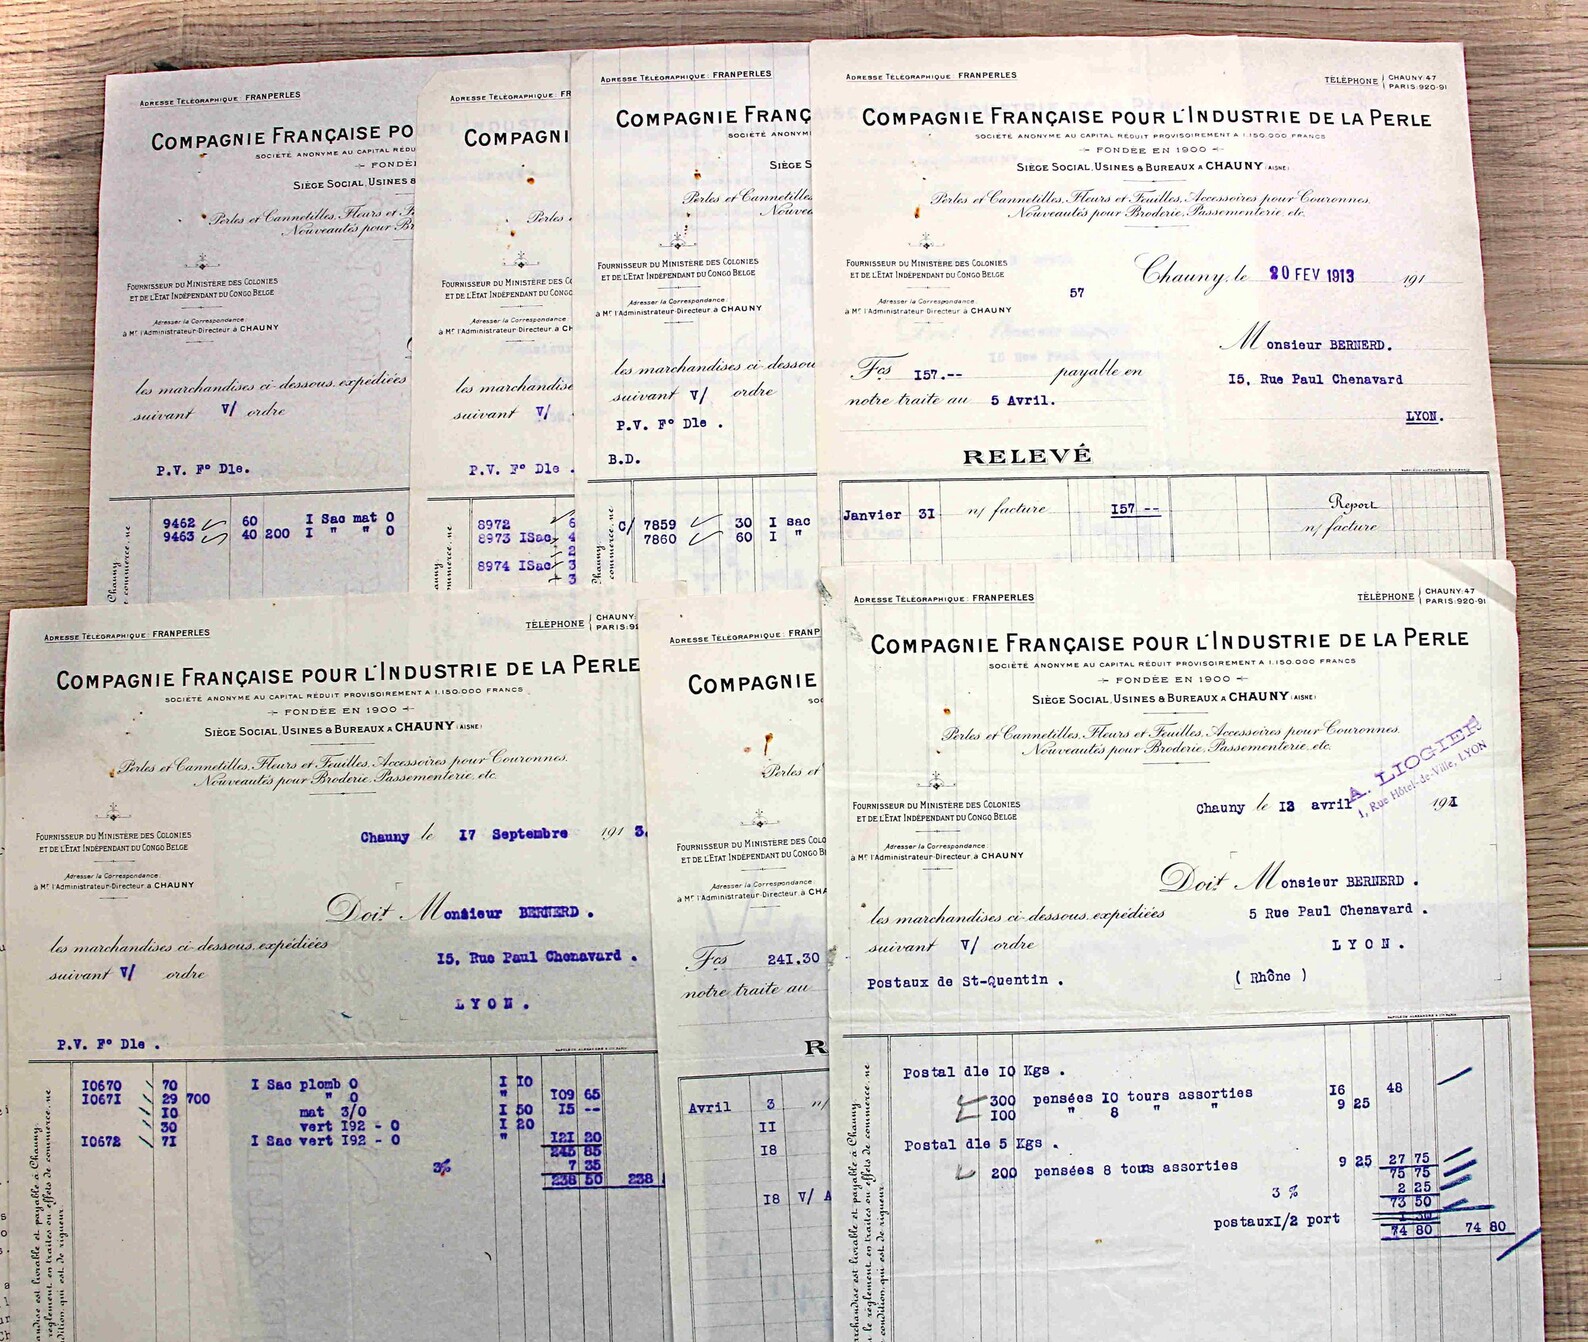 ADRESSE TÉLÉGRAPHIQUE: FRANPERLES
COMPAGNIE FRANÇAISE PO
SOCIÉTÉ ANONYME AU CAPITAL RÉDU
FONDÉ
SIÈGE SOCIAL, USINES &
Perles et Cannetilles, Fleurs et F
Nouveautés pour Br
FOURNISSEUR DU MINISTÈRE DES COLONIES
ET DE L'ETAT INDÉPENDANT DU CONGO BELGE
Adresser la Correspondance:
à Mr l'Administrateur-Directeur à CHAUNY
les marchandises ci-dessous, expédiées
suivant V/ ordre
P.V. F° Dle.
9462 60 I Sac mat 0
9463 40 200 I " " 0
Chauny
commerce, ne
ADRESSE TÉLÉGRAPHIQUE: FR
COMPAGNI
Perles
FOURNISSEUR DU MINISTÈRE DES COL
ET DE L'ETAT INDÉPENDANT DU CONG
Adresser la Correspondance
à Mr l'Administrateur-Directeur à CH
les marchandise
suivant V/
P.V. F° Dle .
8972 6
8973 ISac 4
2
8974 ISac 3
3
ADRESSE TÉLÉGRAPHIQUE: FRANPERLES
COMPAGNIE FRANÇ
SOCIÉTÉ ANONYM
SIÈGE S
Perles et Cannetilles
Nouve
FOURNISSEUR DU MINISTÈRE DES COLONIES
ET DE L'ETAT INDÉPENDANT DU CONGO BELGE
Adresser la Correspondance:
à Mr l'Administrateur-Directeur à CHAUNY
les marchandises ci-dessou
suivant V/ ordre
P.V. F° Dle .
B.D.
C/ 7859 30 I sac
7860 60 I "
Chauny
commerce, ne
ADRESSE TÉLÉGRAPHIQUE: FRANPERLES
TÉLÉPHONE CHAUNY: 47
PARIS: 920-91
COMPAGNIE FRANÇAISE POUR L'INDUSTRIE DE LA PERLE
SOCIÉTÉ ANONYME AU CAPITAL RÉDUIT PROVISOIREMENT A 1.150.000 FRANCS
FONDÉE EN 1900
SIÈGE SOCIAL, USINES & BUREAUX A CHAUNY (AISNE)
Perles et Cannetilles, Fleurs et Feuilles, Accessoires pour Couronnes,
Nouveautés pour Broderie, Passementerie, etc.
FOURNISSEUR DU MINISTÈRE DES COLONIES
ET DE L'ETAT INDÉPENDANT DU CONGO BELGE
Adresser la Correspondance:
à Mr l'Administrateur-Directeur à CHAUNY
Chauny, le 20 FEV 1913 191
57
Monsieur BERNERD.
Fcs 157.-- payable en
15, Rue Paul Chenavard
notre traite au 5 Avril.
LYON.
RELEVÉ
Janvier 31 n/ facture 157 --
Report
n/ facture
ADRESSE TÉLÉGRAPHIQUE: FRANPERLES
TÉLÉPHONE CHAUNY:
PARIS: 92
COMPAGNIE FRANÇAISE POUR L'INDUSTRIE DE LA PERLE
SOCIÉTÉ ANONYME AU CAPITAL RÉDUIT PROVISOIREMENT A 1.150.000 FRANCS
FONDÉE EN 1900
SIÈGE SOCIAL, USINES & BUREAUX A CHAUNY (AISNE)
Perles et Cannetilles, Fleurs et Feuilles, Accessoires pour Couronnes,
Nouveautés pour Broderie, Passementerie, etc.
FOURNISSEUR DU MINISTÈRE DES COLONIES
ET DE L'ETAT INDÉPENDANT DU CONGO BELGE
Adresser la Correspondance:
à Mr l'Administrateur-Directeur à CHAUNY
Chauny le 17 Septembre 191 3.
Doit Monsieur BERNERD .
les marchandises ci-dessous, expédiées
15, Rue Paul Chenavard .
suivant V/ ordre
LYON.
P.V. F° Dle .
I0670 70 I Sac plomb 0 I I0
I0671 29 700 " 0 " I09 65
I0 mat 3/0 I 50 I5 --
30 vert I92 - 0 I 20
I0672 7I I Sac vert I92 - 0 " I2I 20
245 85
3% 7 35
238 50 238
ndise est livrable et payable à Chauny
règlement en traites ou effets de commerce, ne
condition qui est de rigueur.
ADRESSE TÉLÉGRAPHIQUE: FRANP
COMPAGNIE
SOC
Perles et
FOURNISSEUR DU MINISTÈRE DES COLO
ET DE L'ETAT INDÉPENDANT DU CONGO B
Adresser la Correspondance:
à Mr l'Administrateur-Directeur à CHA
Fcs 241,30
notre traite au
R
Avril 3 n/
II
I8
I8 V/ A
ADRESSE TÉLÉGRAPHIQUE: FRANPERLES
TÉLÉPHONE CHAUNY: 47
PARIS: 920-91
COMPAGNIE FRANÇAISE POUR L'INDUSTRIE DE LA PERLE
SOCIÉTÉ ANONYME AU CAPITAL RÉDUIT PROVISOIREMENT A 1.150.000 FRANCS
FONDÉE EN 1900
SIÈGE SOCIAL, USINES & BUREAUX A CHAUNY (AISNE)
Perles et Cannetilles, Fleurs et Feuilles, Accessoires pour Couronnes,
Nouveautés pour Broderie, Passementerie, etc.
A. LIOGIER
1, Rue Hôtel-de-Ville, LYON
FOURNISSEUR DU MINISTÈRE DES COLONIES
ET DE L'ETAT INDÉPENDANT DU CONGO BELGE
Adresser la Correspondance:
à Mr l'Administrateur-Directeur à CHAUNY
Chauny le 13 avril 191
Doit Monsieur BERNERD .
les marchandises ci-dessous, expédiées
5 Rue Paul Chenavard .
suivant V/ ordre
LYON.
Postaux de St-Quentin .
( Rhône )
Postal dle I0 Kgs .
300 pensées I0 tours assorties I6 48
I00 " 8 " " 9 25
Postal dle 5 Kgs .
200 pensées 8 tous assorties 9 25 27 75
75 75
3 % 2 25
73 50
postaux I/2 port I 30
74 80 74 80
rchandise est livrable et payable à Chauny
le règlement en traites ou effets de commerce, ne
condition qui est de rigueur.